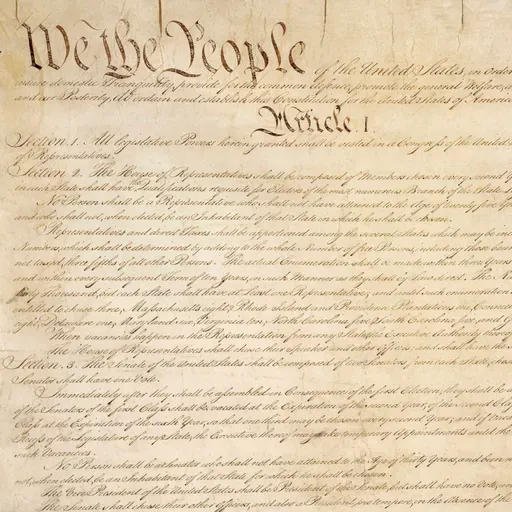 We the People of the United States, in Order
insure domestic Tranquility, provide for the common defence, promote the general Welfare, and
and our Posterity, do ordain and establish this Constitution for the United States of America
Article. I.
Section. 1. All legislative Powers herein granted shall be vested in a Congress of the United
of Representatives.
Section. 2. The House of Representatives shall be composed of Members chosen every second Year
in each State shall have the Qualifications requisite for Electors of the most numerous Branch of the State
No Person shall be a Representative who shall not have attained to the Age of twenty five Years
and who shall not, when elected, be an Inhabitant of that State in which he shall be chosen.
Representatives and direct Taxes shall be apportioned among the several States which may be included
Numbers, which shall be determined by adding to the whole Number of free Persons, including those bound
not taxed, three fifths of all other Persons. The actual Enumeration shall be made within three Years
and within every subsequent Term of ten Years, in such Manner as they shall by Law direct. The
thirty Thousand, but each State shall have at Least one Representative; and until such enumeration
entitled to chuse three, Massachusetts eight, Rhode Island and Providence Plantations one, Connecticut
eight, Delaware one, Maryland six, Virginia ten, North Carolina five, South Carolina five, and
When vacancies happen in the Representation from any State, the Executive Authority thereof
The House of Representatives shall chuse their Speaker and other Officers; and shall have the
Section. 3. The Senate of the United States shall be composed of two Senators from each State, chosen
Senator shall have one Vote.
Immediately after they shall be assembled in Consequence of the first Election, they shall be
of the Senators of the first Class shall be vacated at the Expiration of the second Year, of the second Class
Class at the Expiration of the sixth Year, so that one third may be chosen every second Year; and if
Recess of the Legislature of any State, the Executive thereof may make temporary Appointments until the
such Vacancies.
No Person shall be a Senator who shall not have attained to the Age of thirty Years, and been
not, when elected, be an Inhabitant of that State for which he shall be chosen.
The Vice President of the United States shall be President of the Senate, but shall have no Vote,
The Senate shall chuse their other Officers, and also a President pro tempore, in the Absence of the